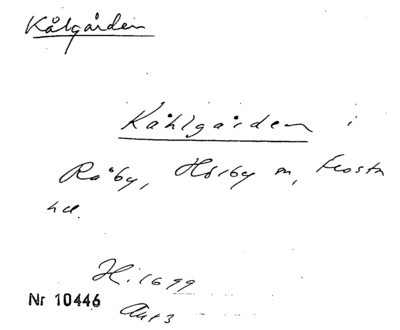 Kålgården
Kåhlgården i
Råby, Hörby sn, Frosta
hd.
H. 1699
Nr 10446
Akt 3